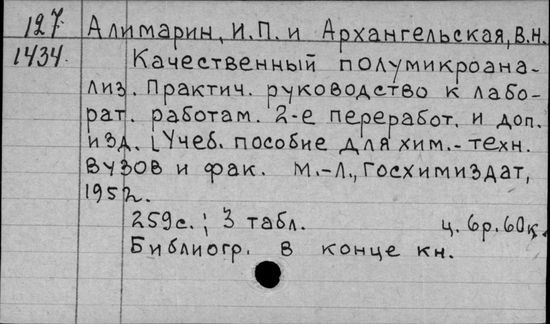 127 Алимарин, И.П. и Архангельская, В.Н.
1434. Качественный полумикроана-
лиз. Практич. руководство к лабо-
рат. работам. 2-е переработ. и доп.
изд. [Учеб. пособие для хим.-техн.
вузов и фак. М.-Л., Госхимиздат,
1952.
259с.; 3 табл. ц. 6р.60к.
Библиогр. в конце кн.